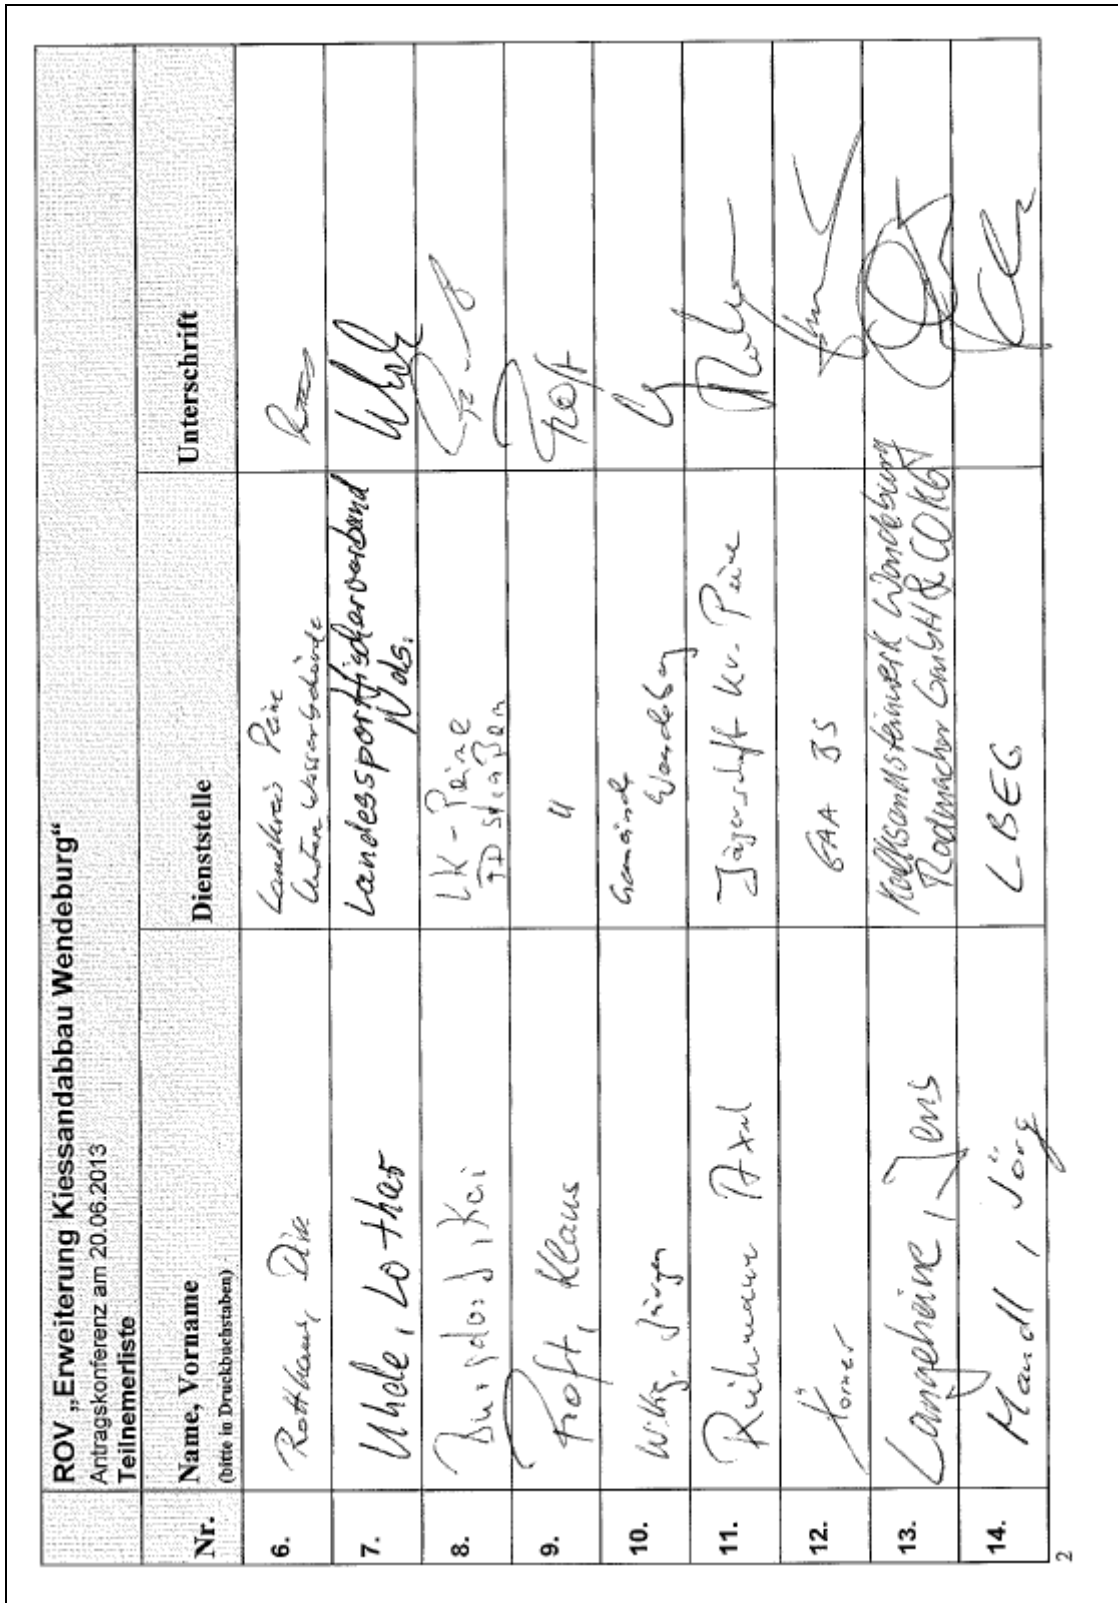 ROV „Erweiterung Kiessandabbau Wendeburg“
Antragskonferenz am 20.06.2013
Teilnemerliste
Nr. Name, Vorname Dienststelle Unterschrift
(bitte in Druckbuchstaben)
6. Dirk Landkreis Peine
Untere Wasserbehörde
7. Uhde, Lothar Landessportfischerverband
Nds.
8. Kai LK-Peine
FD Straßen
9. Proft, Klaus " Proft
10. Jürgen Gemeinde
Wendeburg
11. Axel Jägerschaft Kr. Peine
12. Körner GAA BS
13. Langeheine, Jens Kalksandsteinwerk Wendeburg
Radmacher GmbH & CO KG
14. Mandl, Jörg LBEG
2